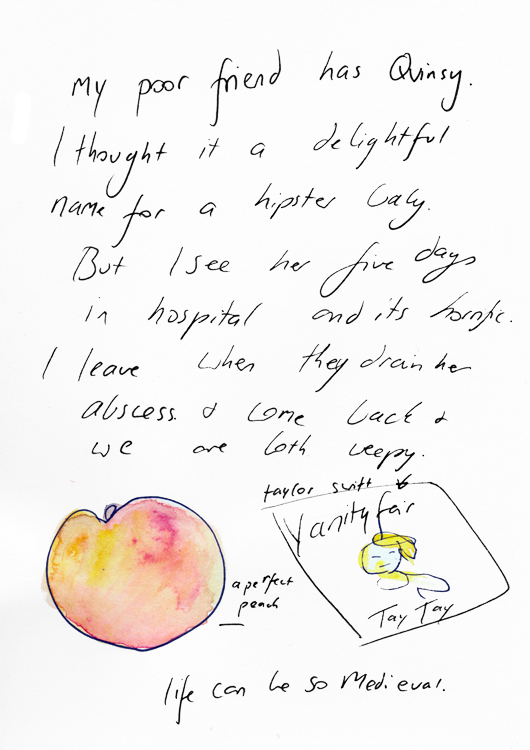 My poor friend has Quinsy.
I thought it a delightful
name for a hipster baby.
But I see her five days
in hospital and its horrific.
I leave when they drain her
abscess. & come back &
we are both weepy.
taylor swift
Vanity fair
a perfect
peach
Tay Tay
life can be so Medieval.